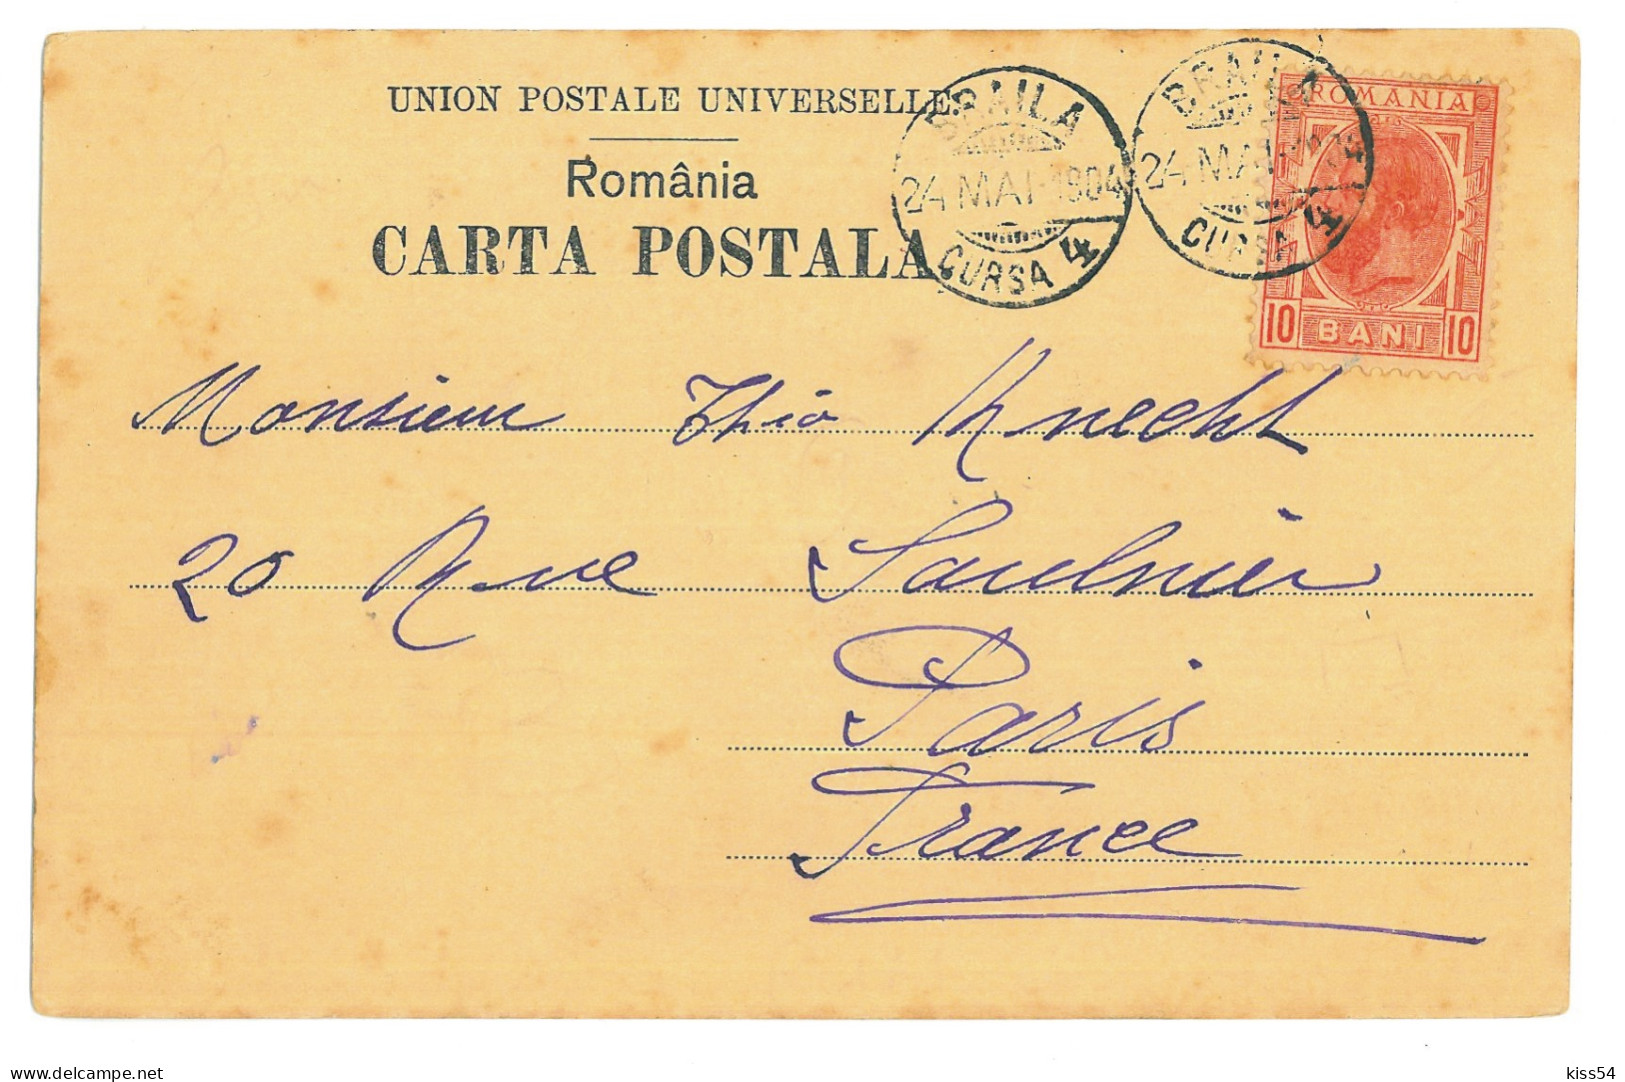 UNION POSTALE UNIVERSELLE
România
CARTA POSTALA
BRAILA
24 MAI 1904
CURSA 4
BRAILA
24 MAI
CURSA 4
ROMANIA
10 BANI 10
Monsieur Théo Knecht
20 Rue Saulnier
Paris
France
kiss54